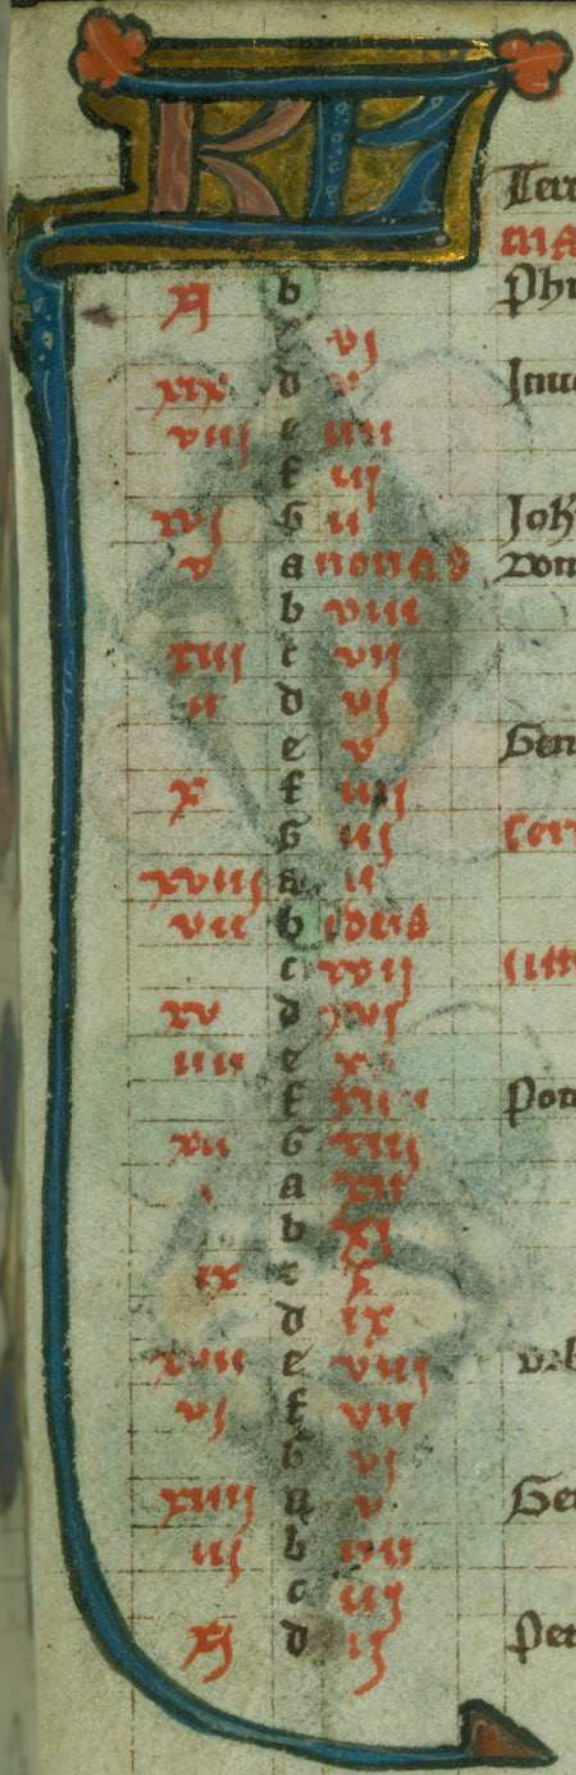 KL
Terr
ma
b Phi
c vj
xix d v Inue
viij e iiij
f iij
xvj G ij Joh
v a nonas Dom
b viii
xiij c vij
ij d vj
e v Gen
x f iiij
G iij Ser
xviij a ii
vii b idus
c xvij
xv d xvj
iiii e xv
f xiiij Pot
xii G xiij
i a xii
b xj
ix c x
d ix
xvii e viij vrb
vj f vii
G vj
xiiij a v Ger
iij b iiii
c iij
xj d ij Pet